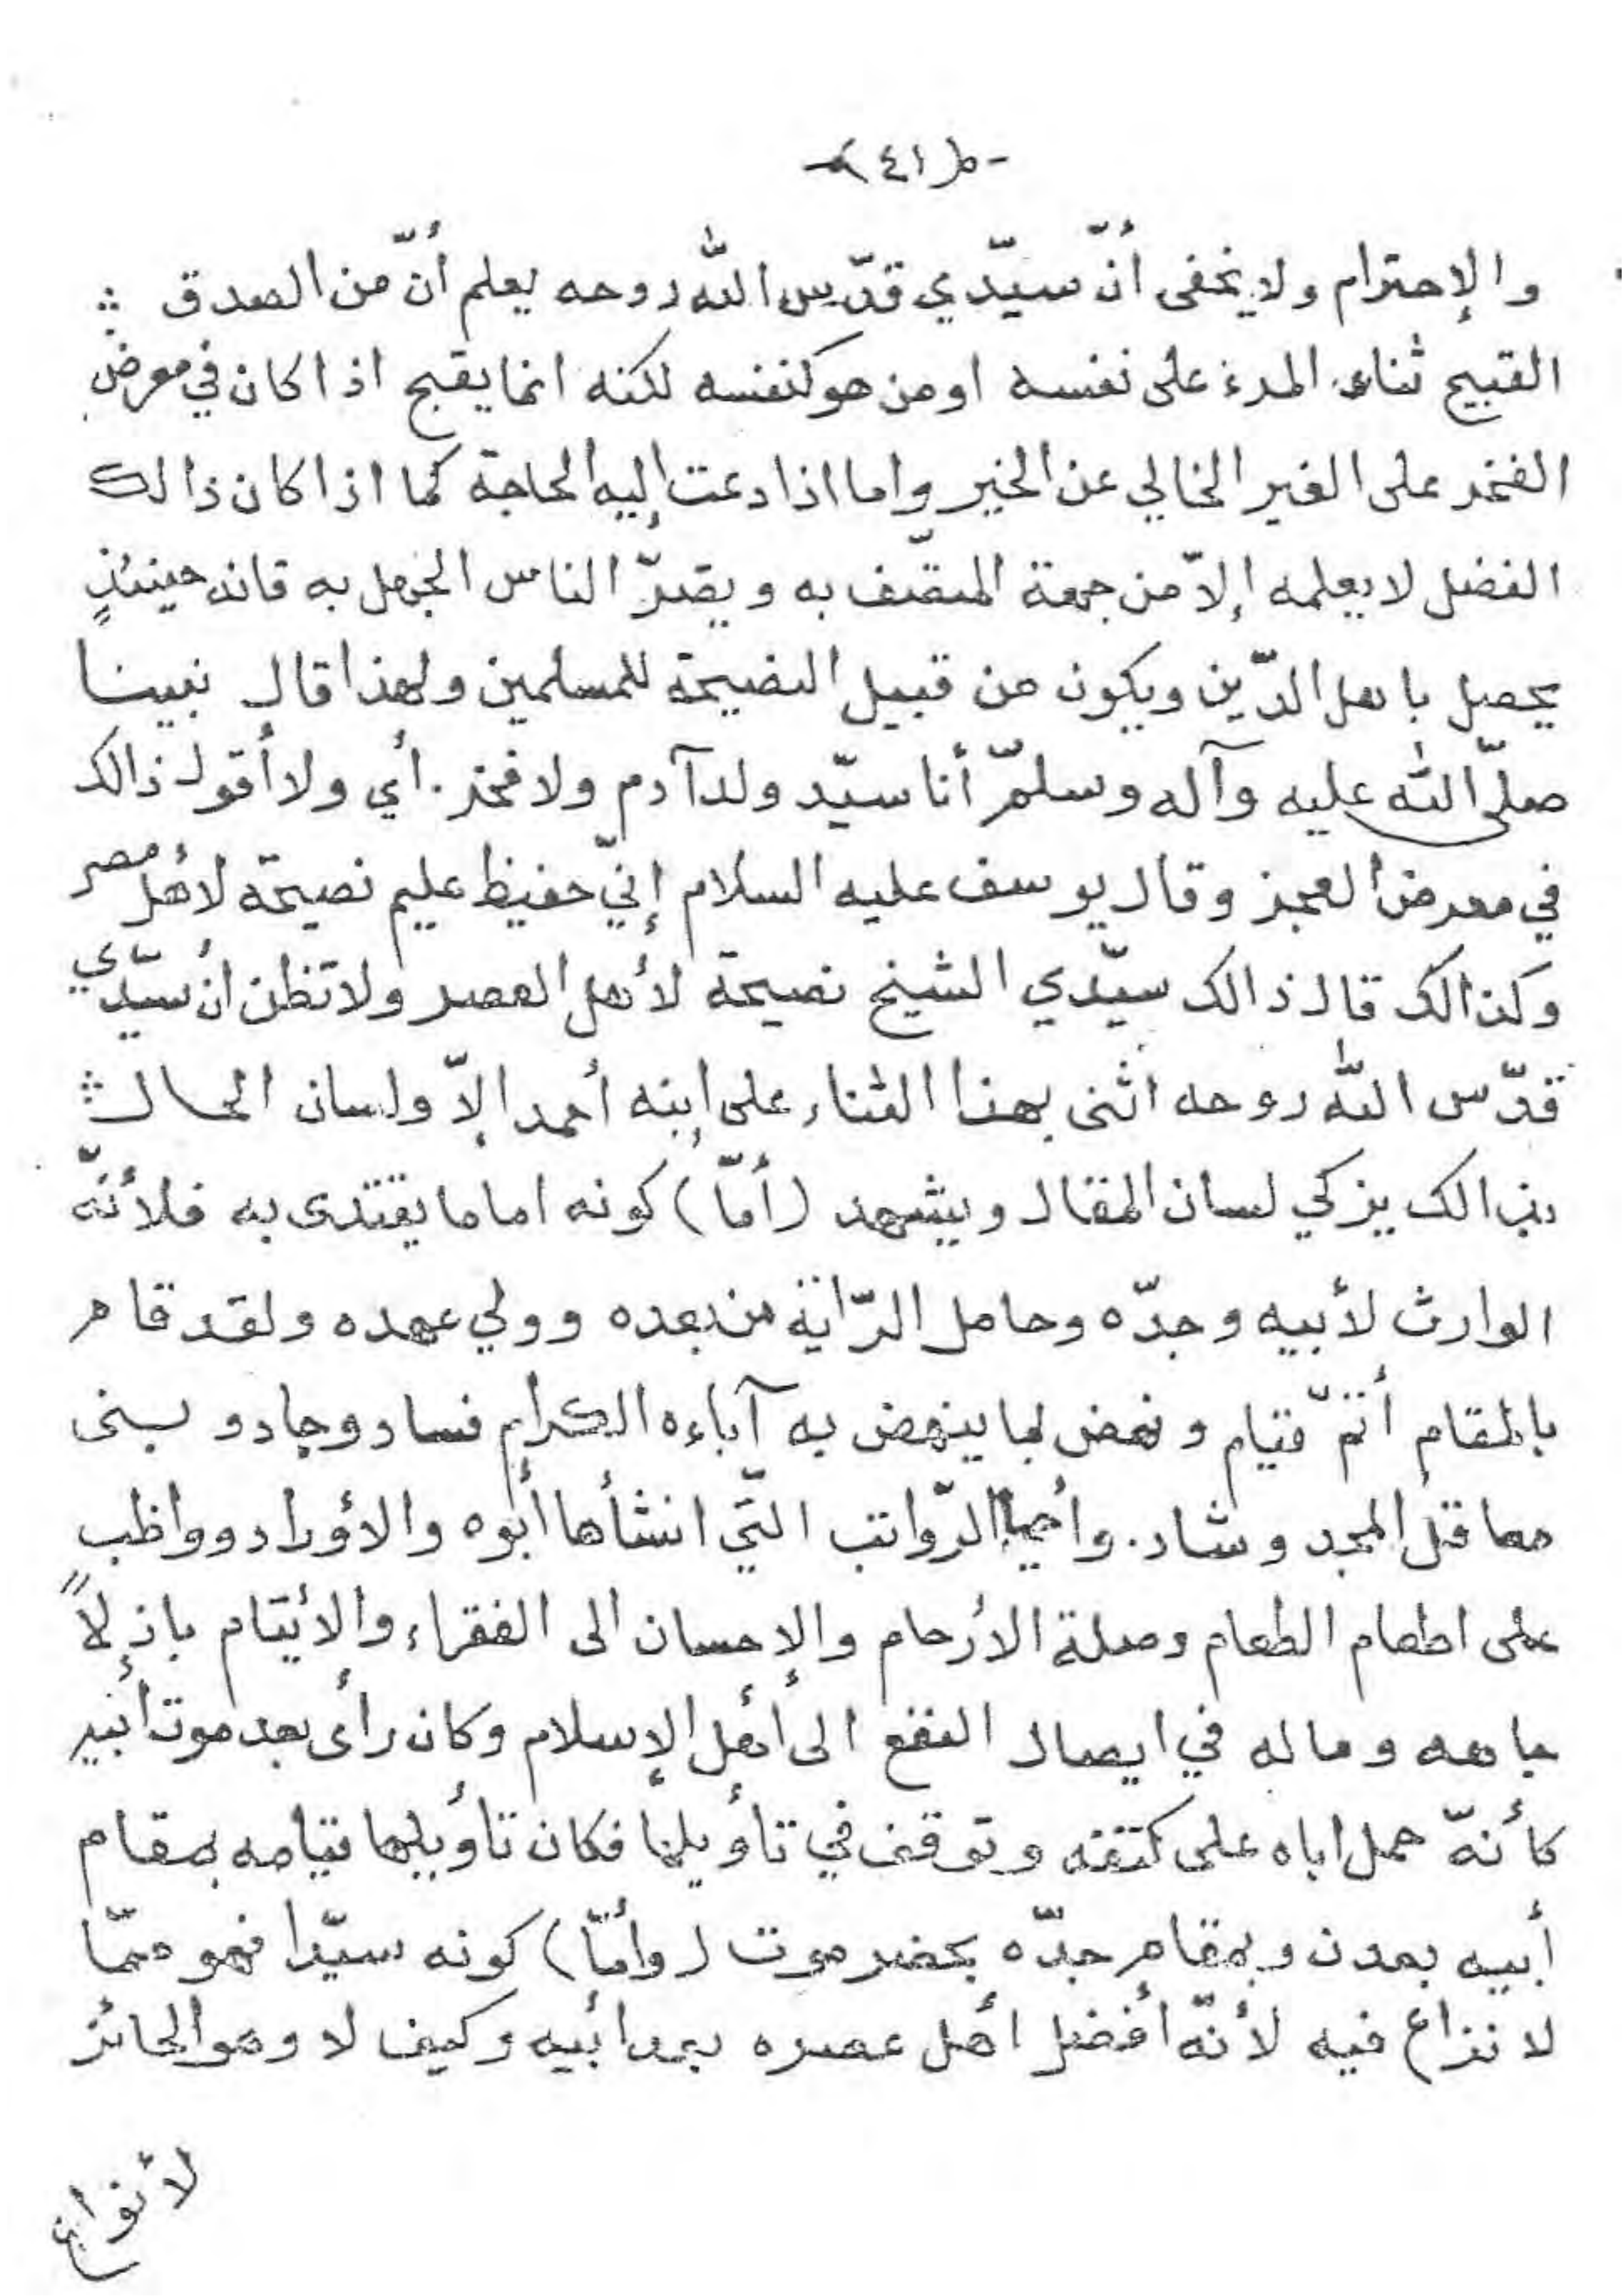 -(٤١)-
والإحترام ولا يخفى أنّ سيّدي قدّس الله روحه يعلم أنّ من الصدق
القبيح ثناء المرء على نفسه او من هو كنفسه لكنه انما يقبح اذا كان في معرض
الفخر على الغير الخالي عن الخير واما اذا دعت إليه الحاجة كما اذا كان ذالك
الفضل لا يعلمه إلاّ من جهة المتصّف به ويضرّ الناس الجهل به فانه حينئذٍ
يحصل باهل الدّين ويكون من قبيل النصيحة للمسلمين ولهذا قال نبينا
صلّى الله عليه وآله وسلمّ أنا سيّد ولد آدم ولا فخر. أي ولا أقول ذالك
في معرض الفخر وقال يوسف عليه السلام إنيّ حفيظ عليم نصيحة لأهل مصر
وكذالك قال ذالك سيّدي الشيخ نصيحة لأهل العصر ولا تظن أن سيّدي
قدّس الله روحه اثنى بهذا الثناء على إبنه أحمد إلاّ ولسان الحال
بذالك يزكي لسان المقال ويشهد (أمّا) كونه اماما يقتدى به فلأنهّ
الوارث لأبيه وجدّه وحامل الرّاية من بعده وولي عهده ولقد قام
بالمقام أتمّ قيام ونهض بما ينهض به آباءه الكرام فساد وجاد وبنى
معاقل المجد وشاد. وأحيا الرّواتب التّي انشأها أبوه والأوراد وواظب
على اطعام الطعام وصلة الأرحام والإحسان الى الفقراء والأيتام باذلاً
جاهه وماله في ايصال النفع الى أهل الإسلام وكان رأى بعد موت أبيه
كأنهّ حمل اباه على كتفه وتوقف في تأويلها فكان تأويلها قيامه بمقام
أبيه بعدن وبمقام جدّه بحضرموت (وأمّا) كونه سيّدا فهو ممّا
لا نزاع فيه لأنهّ أفضل أهل عصره بعد أبيه وكيف لا وهو الحائز
لأنواع